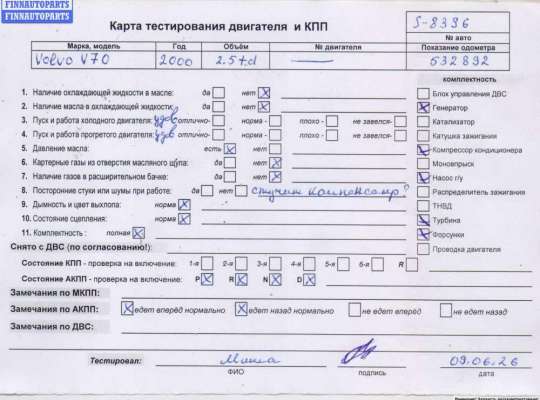 FINNAUTOPARTS
FINNAUTOPARTS
Карта тестирования двигателя и КПП
S-8396
№ авто
Марка, модель Год Объём № двигателя Показание одометра
Volvo V70 2000 2.5td — 532892
комплектность
1. Наличие охлаждающей жидкости в масле: да нет X
2. Наличие масла в охлаждающей жидкости: да нет X
3. Пуск и работа холодного двигателя: удов отлично- норма - плохо - не завелся-
4. Пуск и работа прогретого двигателя: удов отлично- норма - плохо - не завелся-
5. Давление масла: есть X нет
6. Картерные газы из отверстия масляного щупа: да нет X
7. Наличие газов в расширительном бачке: да нет X
8. Посторонние стуки или шумы при работе: да нет стучит компенсатр
9. Дымность и цвет выхлопа: норма X
10. Состояние сцепления: норма X
11. Комплектность : полная X
Блок управления ДВС
X Генератор
Катализатор
Катушка зажигания
X Компрессор кондиционера
Моновпрыск
X Насос г/у
Распределитель зажигания
ТНВД
X Турбина
X Форсунки
Проводка двигателя
Снято с ДВС (по согласованию!):
Состояние КПП - проверка на включение: 1-я 2-я 3-я 4-я 5-я 6-я R
Состояние АКПП - проверка на включение: P X R X N X D X
Замечания по МКПП:
Замечания по АКПП: X едет вперёд нормально X едет назад нормально не едет вперёд не едет назад
Замечания по ДВС:
Тестировал: Миша 09.06.26
ФИО подпись дата